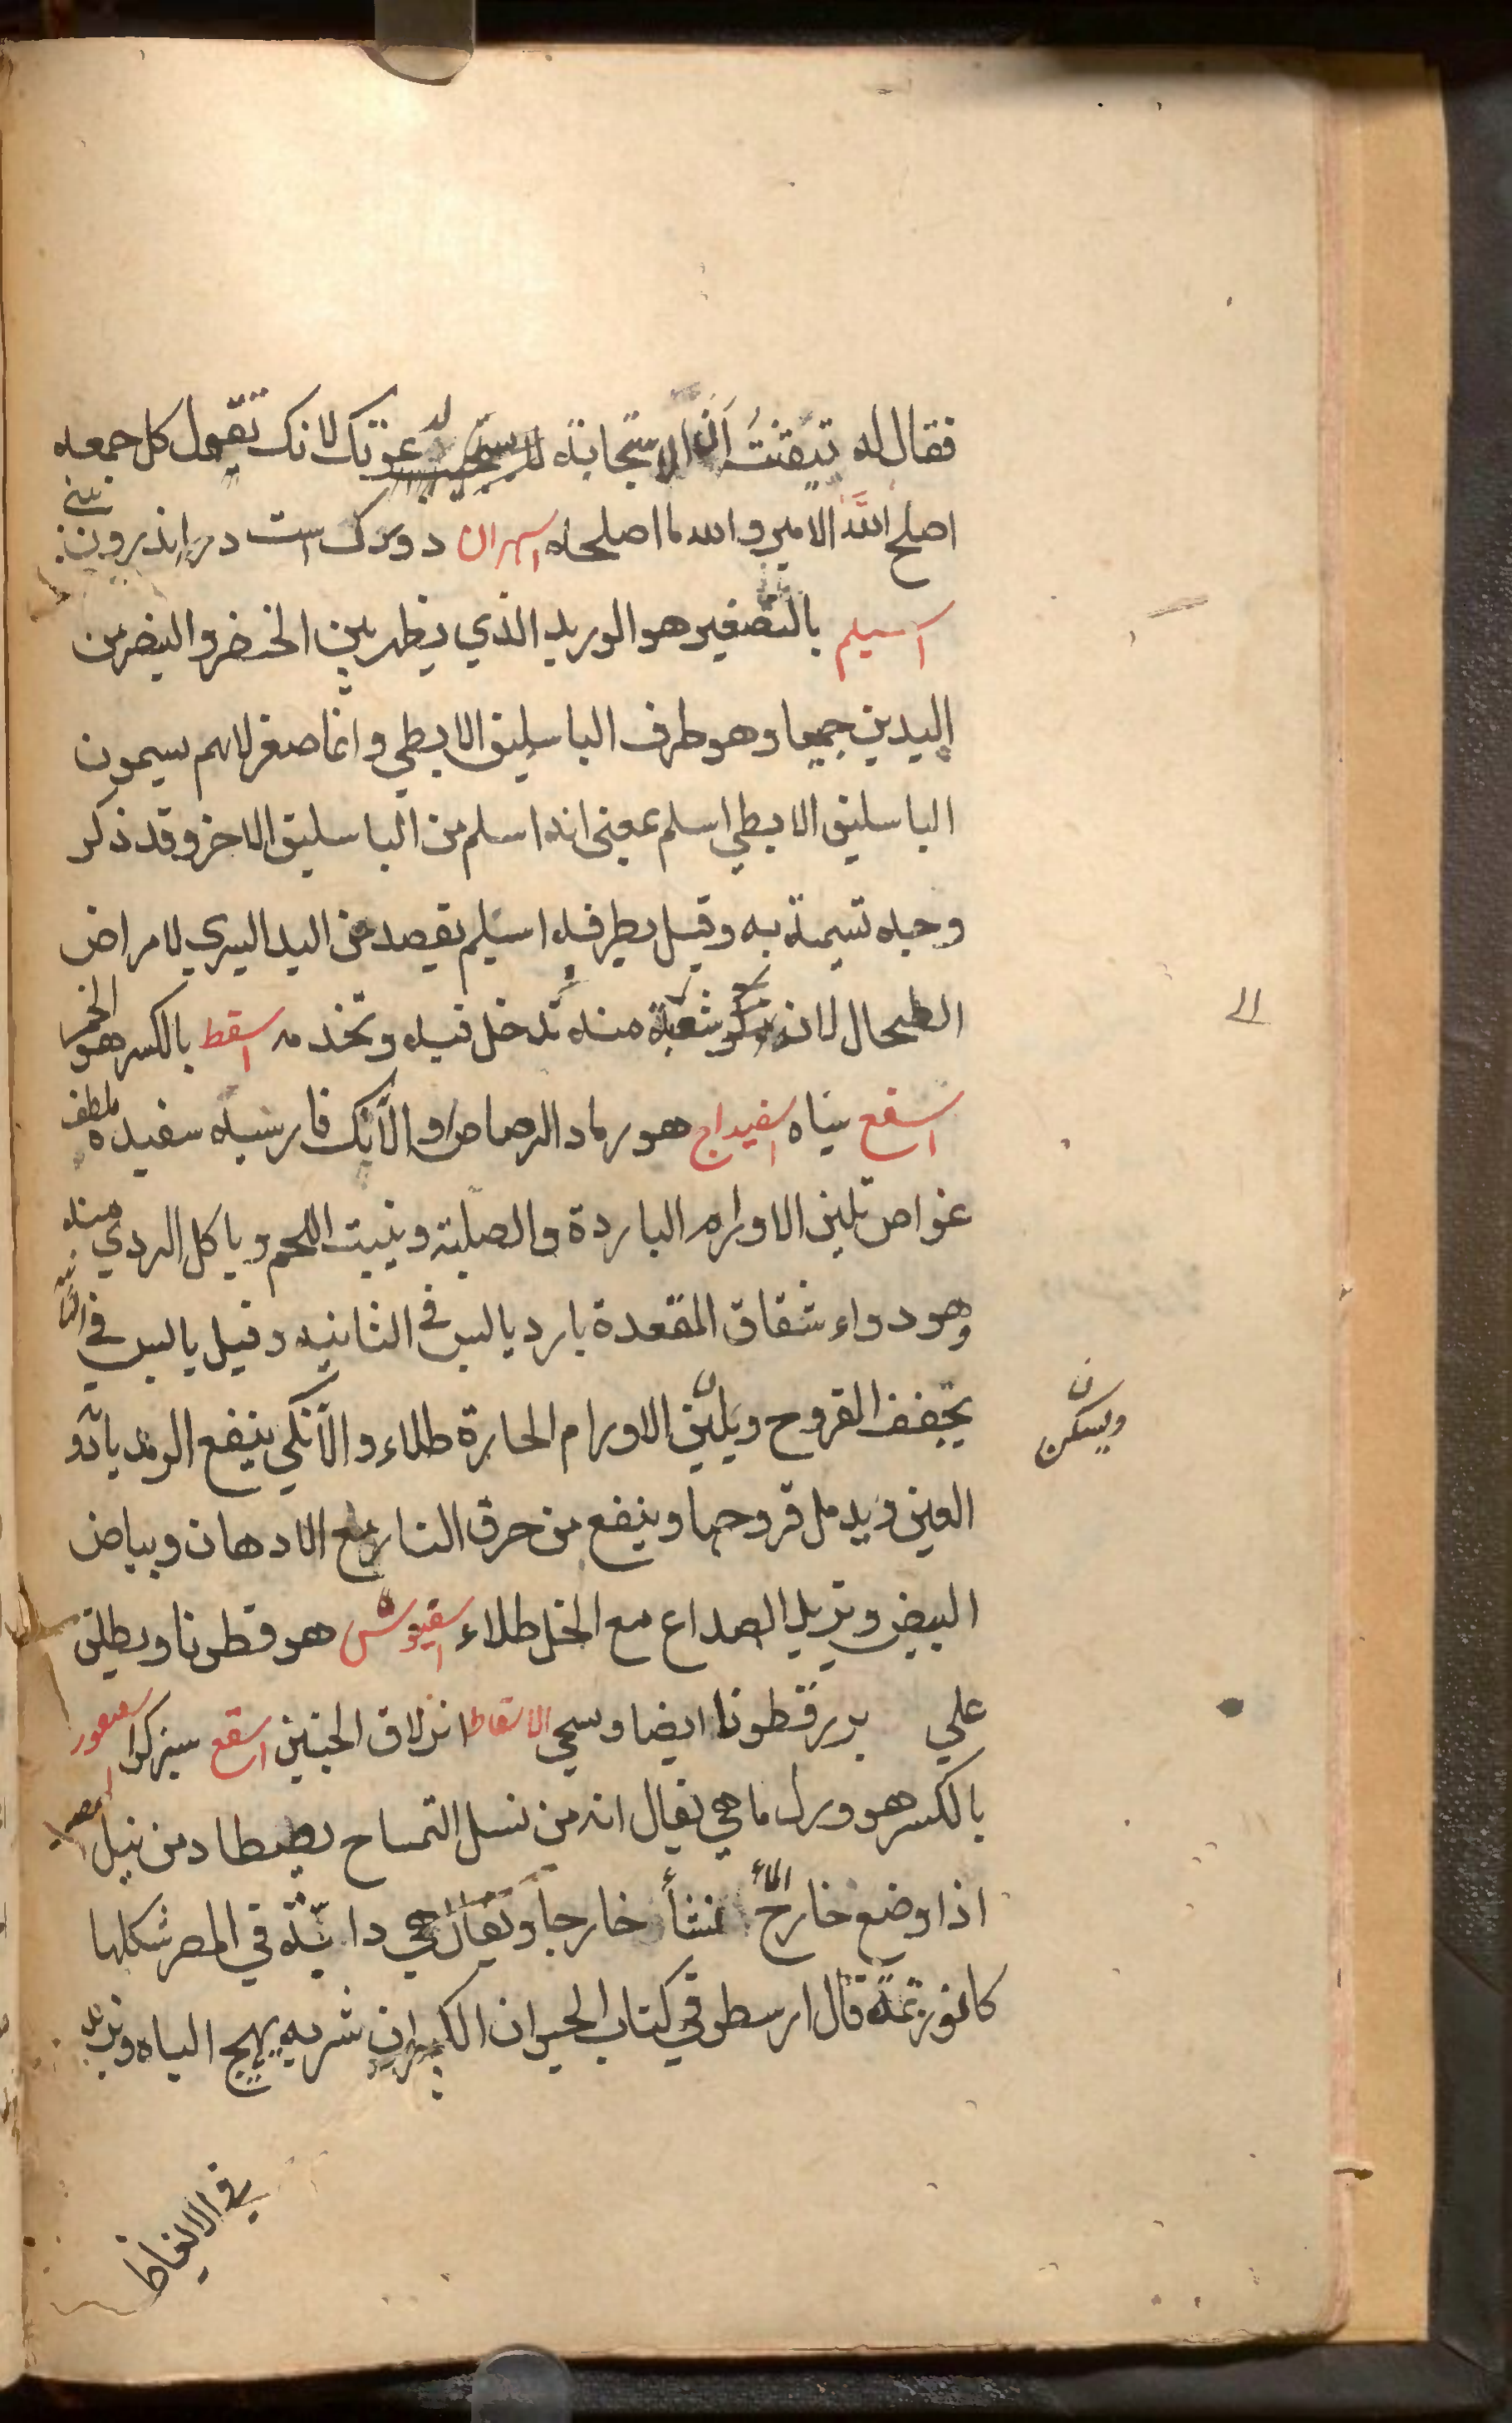 فقال له تيقنتُ اَنّ الاستجابة لدعوتك لانك تقول كل جمعه
اصلح اللّه الامير والله ما اصلحه اسهران دو رك است در اندرون بيني
اسيلم بالتصغير هو الوريد الذي يظهر بين الخنصر والبنصر من
اليدين جميعا وهو طرف الباسليق الابطي وانما صغر لانهم يسمون
الباسليق الابطي اسلم بمعنى انه اسلم من الباسليق الاخر وقد ذكر
وجه تسيمة به وقيل بطرفه اسيلم يفصد من اليد اليسري لامراض
الطحال لانه شعبة منه تدخل فيه وتخدمه اسقط بالكسر هو الخمر
اسفع سياه اسفيداج هو رماد الرصاص او الآنك فارسيه سفيده ملطف
غواص تلين الاورام الباردة والصلبة وينبت اللحم وياكل الردي منه
وهو دواء شقاق المقعدة بارد يابس في الثانيه وقيل يابس في الثالثة
يجفف القروح ويليّن الاورام الحارة طلاء والآنكي ينفع الرمد يادو
ويسكن
العين ويدمل قروحها وينفع من حرق النار مع الادهان وبياض
البيض ويزيل الصداع مع الخل طلاء اسقيوش هو قطونا ويطلق
علي بزر قطونا ايضا وسمي الاسقاط انزلاق الجنين اسقع سبزكرا اسقنقور
بالكسر هو ورل ماهي يقال انه من نسل التمساح يصطاد من نيل مصر
اذا وضع خارج الماء نشأ خارجا ويقال هي دابّة في المصر شكلها
كالوزغة قال ارسطو في كتاب الحيوان الكبير ان شربه يهيج الباه ويزيد
في الانعاظ